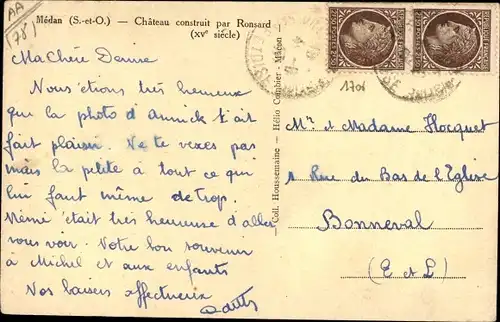 AA
(78)
Médan (S.-et-O.) — Château construit par Ronsard
(XVe siècle)
Ma Chère Denise
Nous étions très heureux
que la photo d'Annick t'ait
fait plaisir. Ne te vexes pas
mais la petite à tout ce qui
lui faut même de trop.
Mémé était très heureuse d'aller
vous voir. Notre bon souvenir
à Michel et aux enfants
Nos baisers affectueux
Coll. Houssemaine — Hélio Combier - Mâcon
1708
Mr et Madame Hocquet
1 Rue du Bas de l'Église
Bonneval
(E et L)